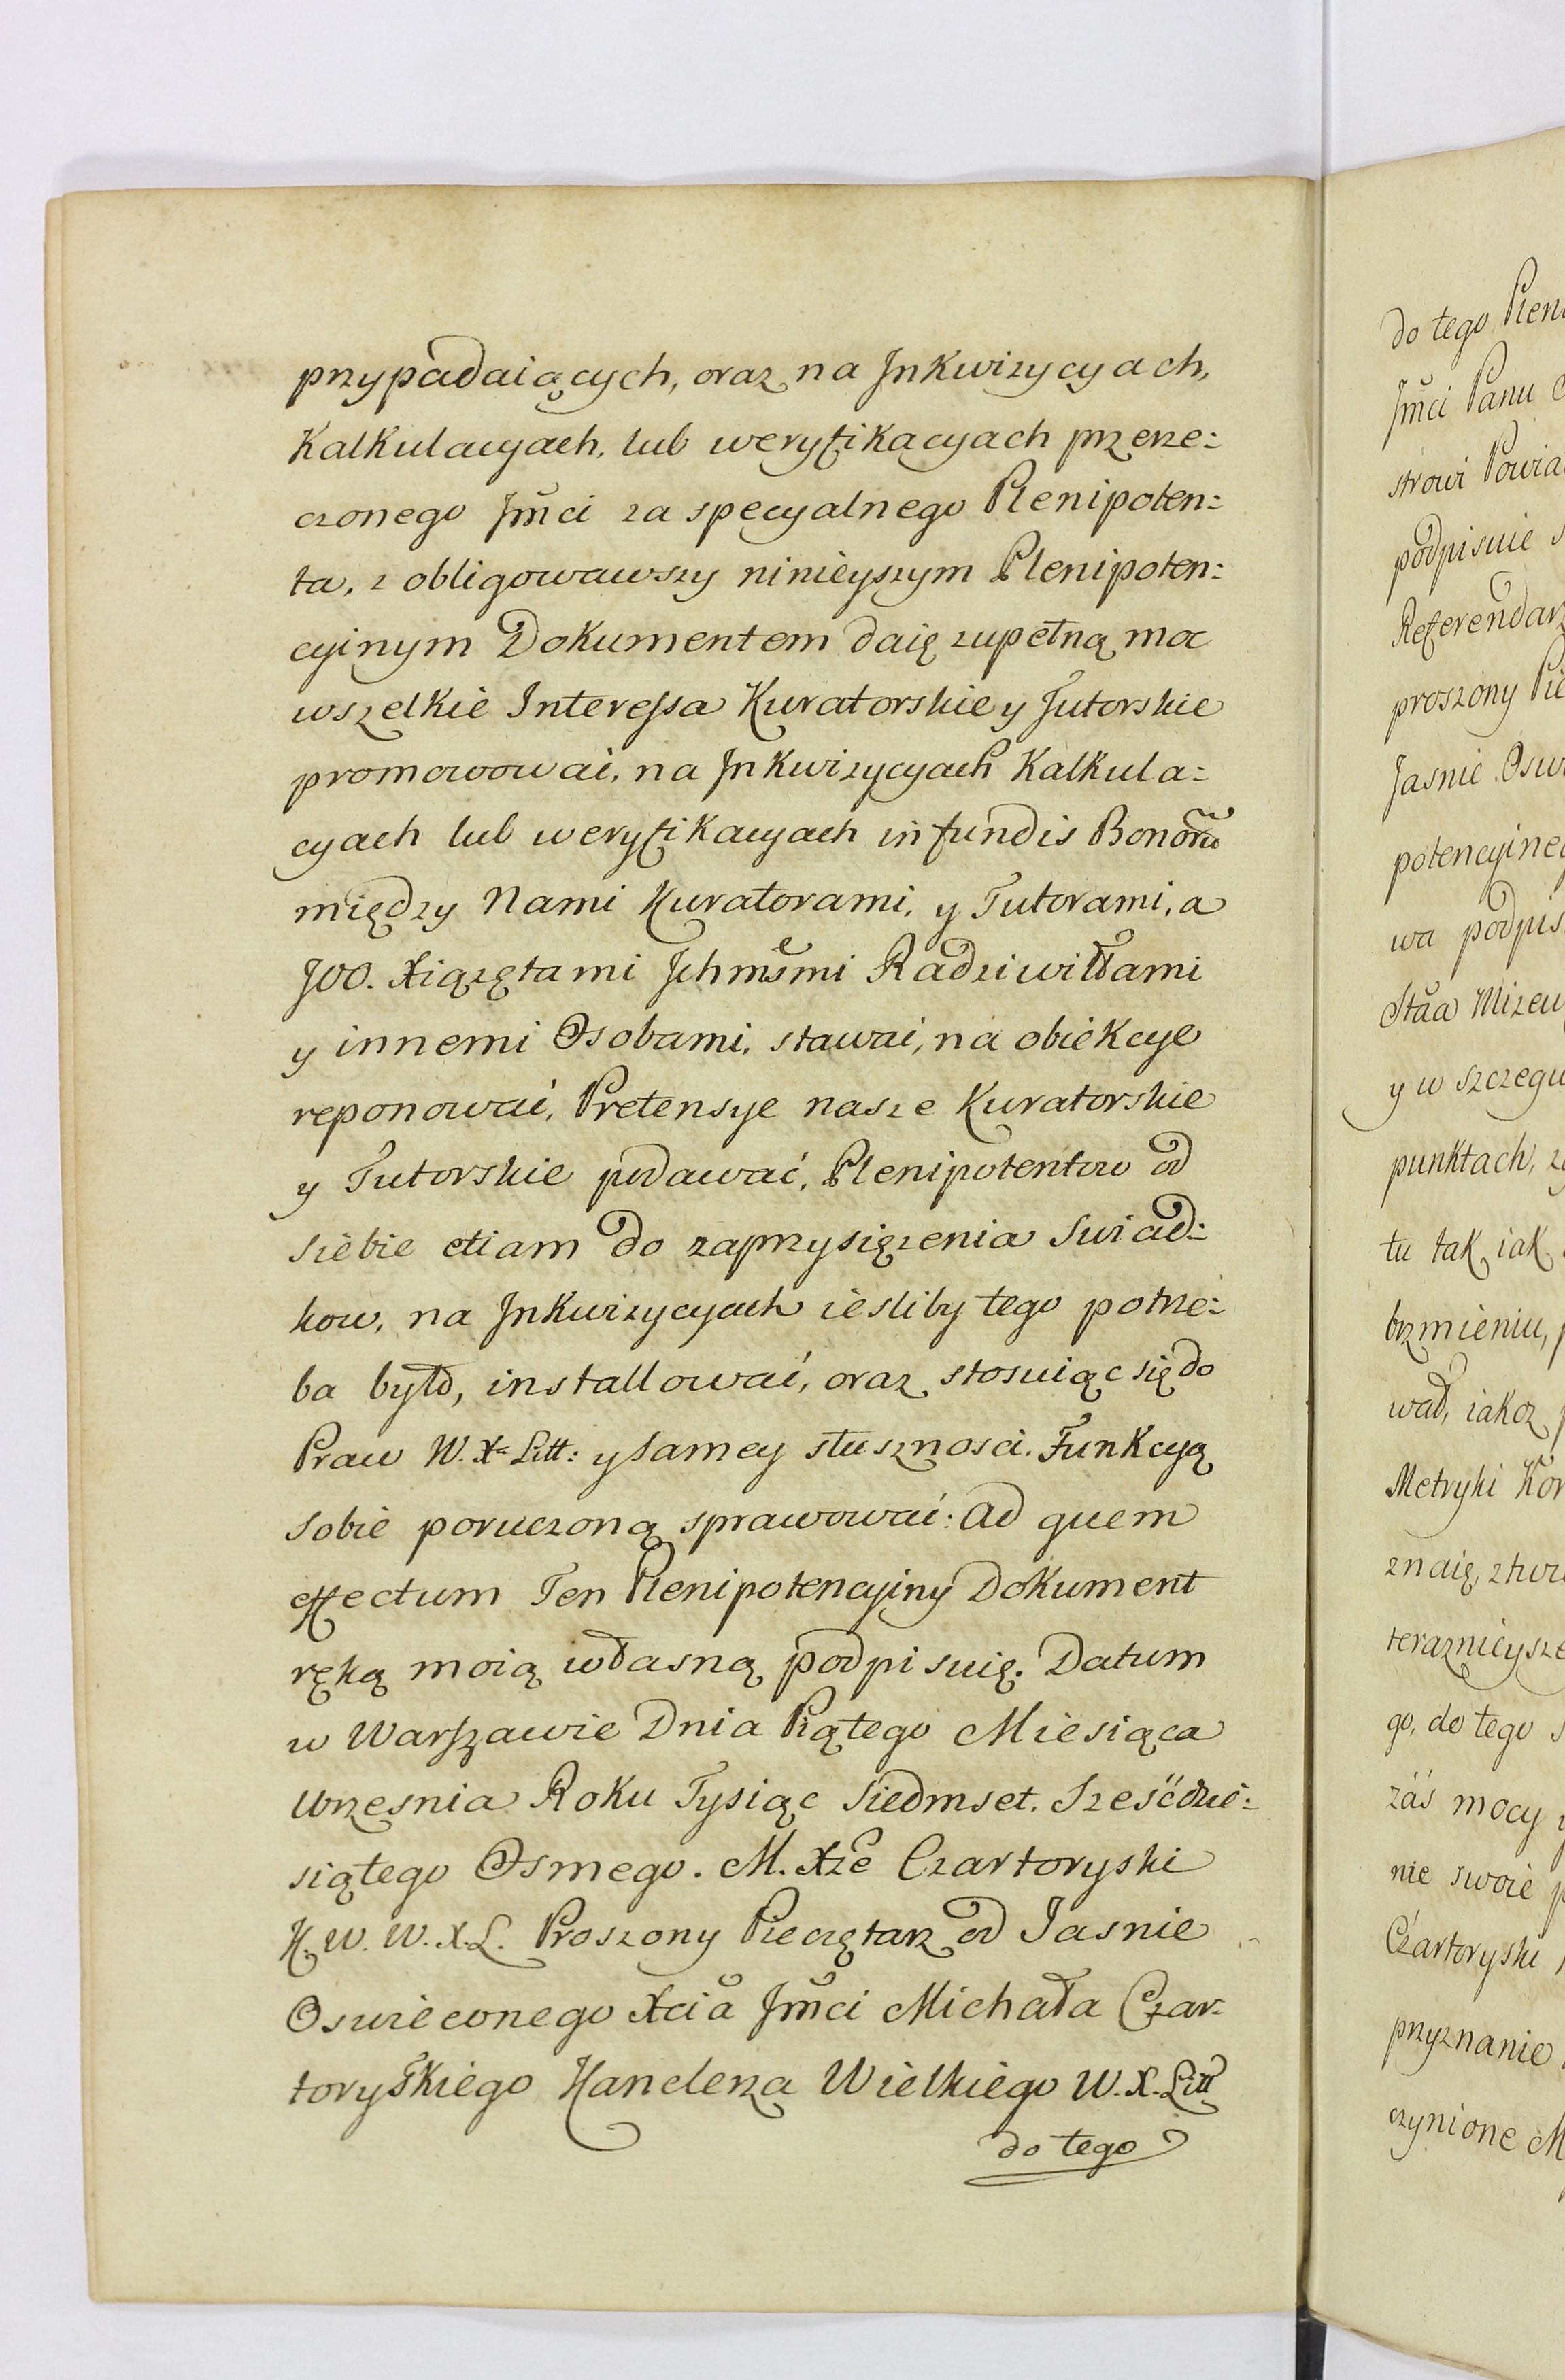 przypadaiących, oraz na Jnkwizycyach,
Kalkulacyach, lub weryfikacyach przerze=
czonego Jmci za specyalnego Plenipoten=
ta, zobligowawszy ninieyszym Plenipoten=
cyinym Dokumentem daię zupełną moc
wszelkie Interessa Kuratorskie y Tutorskie
promowować, na Jnkwizycyach Kalkula=
cyach lub weryfikacyach in fundis Bonorũ
między Nami Kuratorami, y Tutorami, a
JOO. Xiążętami Jchmśćmi Radziwiłłami
y innemi Osobami, stawać, na obiekcye
reponować, Pretensye nasze Kuratorskie
y Tutorskie podawać, Plenipotentow od
siebie etiam do zaprzysiężenia Swiad=
kow, na Jnkwizycyach iesliby tego potrze=
ba było, installować, oraz stosuiąc się do
Praw W. X. Litt: y samey słusznosci. Funkcyą
sobie poruczoną sprawować: Ad quem
effectum Ten Plenipotencyiny Dokument
ręką moią własną podpisuię. Datum
w Warszawie Dnia Piątego Miesiąca
Wrzesnia Roku Tysiąc Siedmset. Sześćdzie=
siątego Osmego. M. Xże Czartoryski
K. W. W. X. L. Proszony Pieczętarz od Jasnie
Oswieconego Xcia Jmci Michała Czar=
toryskiego Kanclerza Wielkiego W. X. Litt
do tego
do tego
Jmci Panu
strowi
podpisuie
proszony
Jasnie
wa
y w
punktach,
tu tak iak
brzmieniu,
wał, iakoż
Metryki
znaię,
go, do tego
zaś mocy
nie swoie
Czartoryski
przyznanie
czynione